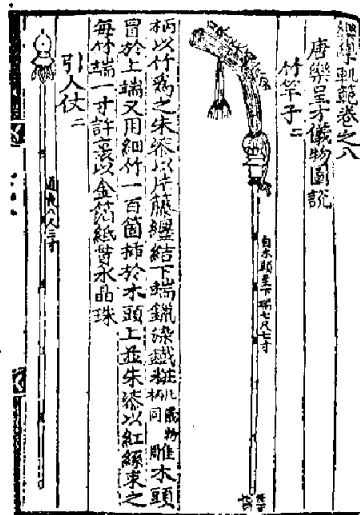 樂學軌範卷之八
唐樂呈才儀物圖說
竹竿子二
自木頭至下端七尺七寸
柄以竹爲之朱漆以片藤纏結下端鑞染鐵粧凡儀物柄同雕木頭
冒於上端又用細竹一百箇揷於木頭上並朱漆以紅絲束之
每竹端一寸許裹以金箔紙貫水晶珠
引人仗二
通長八尺三寸